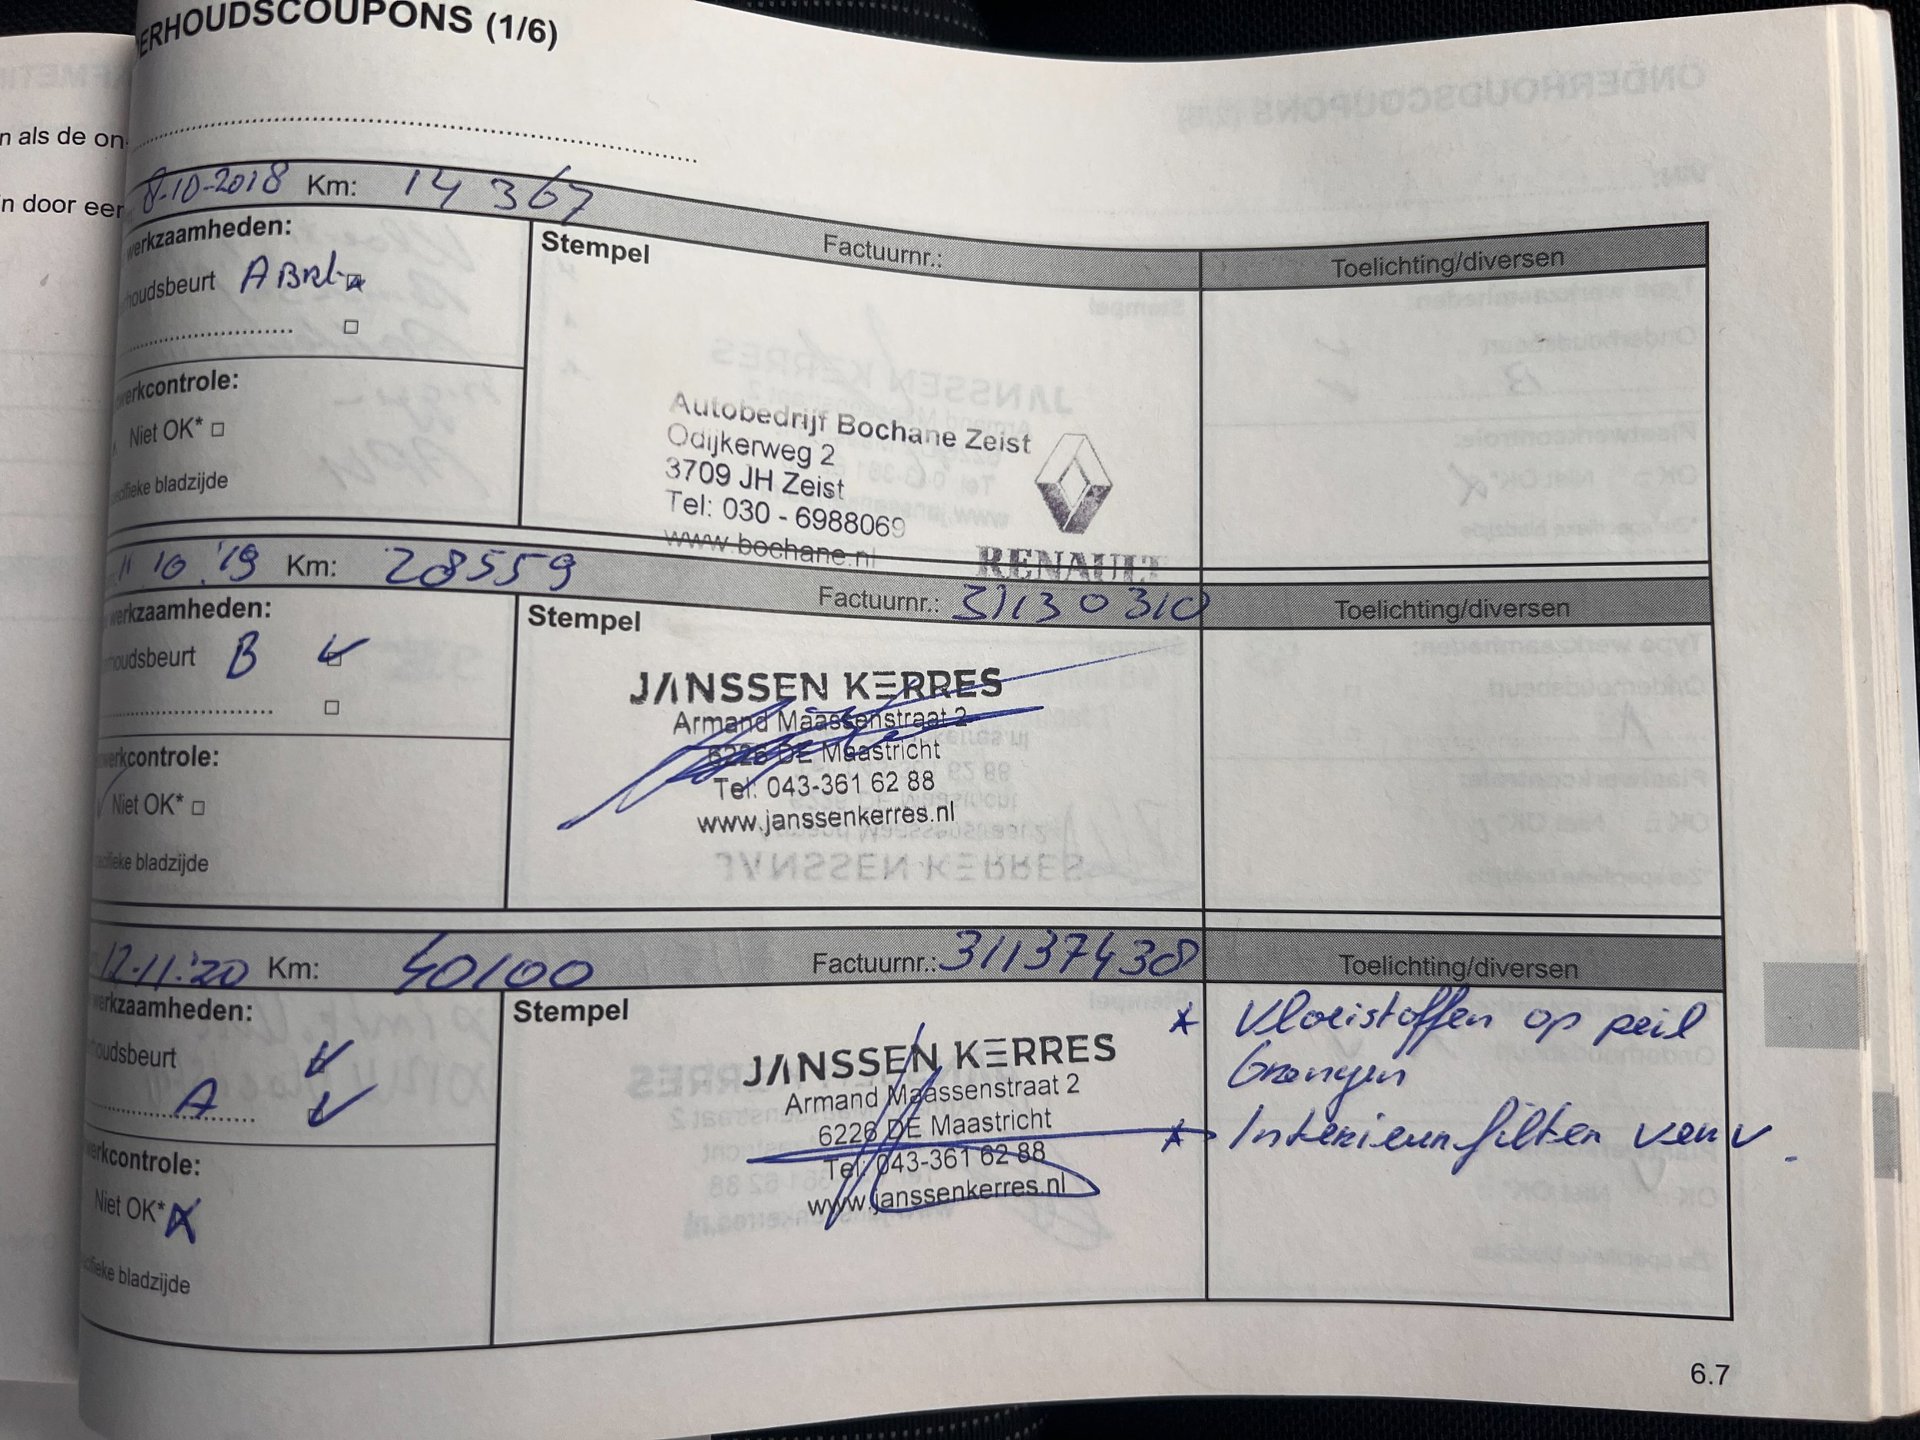 ERHOUDSCOUPONS (1/6)
n als de on
n door eer
8-10-2018 Km: 14 367
werkzaamheden:
Stempel
Factuurnr.:
Toelichting/diversen
rhoudsbeurt A
Autobedrijf Bochane Zeist
Odijkerweg 2
3709 JH Zeist
Tel: 030 - 6988069
www.bochane.nl
RENAULT
werkcontrole:
Niet OK*
ecifieke bladzijde
11 10 '19 Km: 28559
Factuurnr.: 31130310
Toelichting/diversen
werkzaamheden:
Stempel
rhoudsbeurt B
JANSSEN KERRES
Armand Maassenstraat 2
6226 DE Maastricht
Tel: 043-361 62 88
www.janssenkerres.nl
werkcontrole:
Niet OK*
ecifieke bladzijde
12.11.'20 Km: 40100
Factuurnr.: 31137438
Toelichting/diversen
werkzaamheden:
Stempel
houdsbeurt
A
JANSSEN KERRES
Armand Maassenstraat 2
6226 DE Maastricht
Tel: 043-361 62 88
www.janssenkerres.nl
* Vloeistoffen op peil
brengen
* Interieurfilter verv.
werkcontrole:
Niet OK*
cifieke bladzijde
6.7